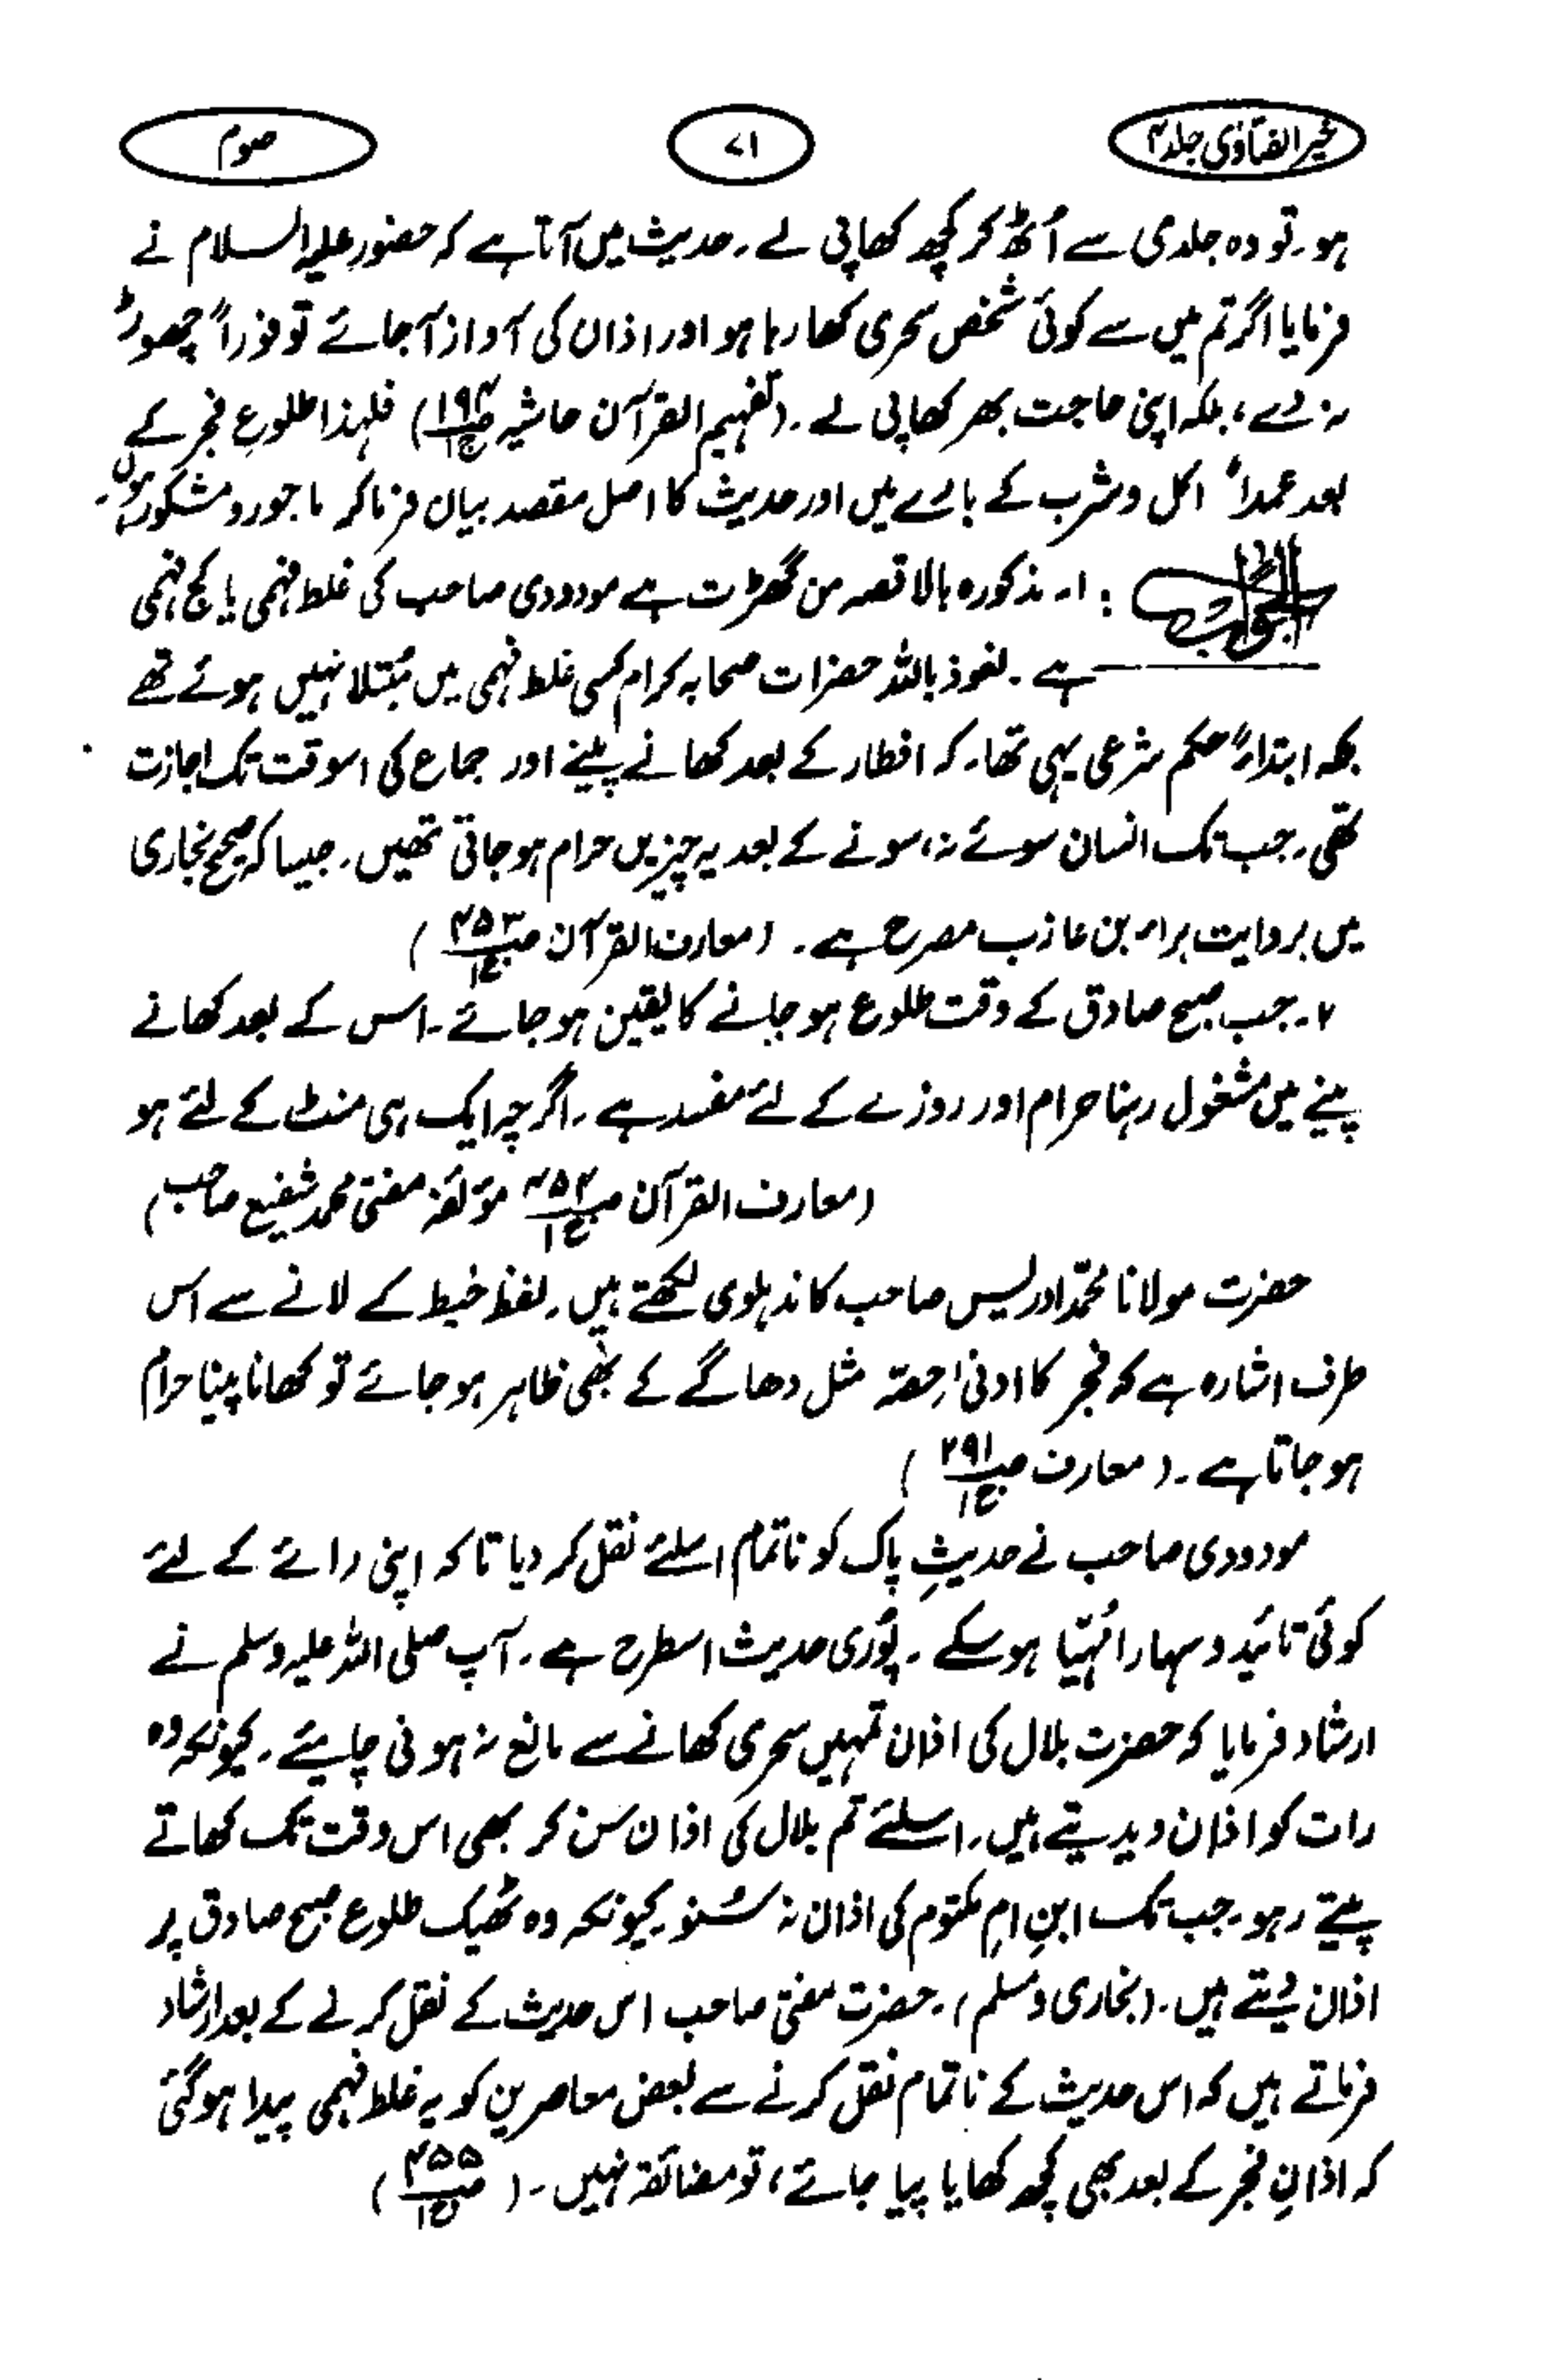 خیر الفتاوٰی جلد ۴
۷۱
صوم
ہو۔ تو وہ جلدی سے اُٹھ کر کچھ کھاپی لے۔ حدیث میں آتا ہے کہ حضور علیہ السلام نے
فرمایا اگر تم میں سے کوئی شخص سحری کھا رہا ہو اور اذان کی آواز آجائے تو فوراً چھوڑ
نہ دے، بلکہ اپنی حاجت بھر کھاپی لے۔ (تفہیم القرآن حاشیہ ج۱) فلہذا طلوعِ فجر کے
بعد عمداً اکل و شرب کے بارے میں اور حدیث کا اصل مقصد بیان فرماکر ماجور و مشکور ہوں۔
الجواب : ۱۔ مذکورہ بالا قصہ من گھڑت ہے مودودی صاحب کی غلط فہمی یا کج فہمی
ہے۔ نعوذ باللہ حضرات صحابہ کرام کسی غلط فہمی میں مُبتلا نہیں ہوئے تھے
بلکہ ابتداءً حکم شرعی یہی تھا۔ کہ افطار کے بعد کھانے پینے اور جماع کی اسوقت تک اجازت
تھی۔ جب تک انسان سوئے نہ، سونے کے بعد یہ چیزیں حرام ہوجاتی تھیں۔ جیسا کہ صحیح بخاری
میں بروایت براء بن عازب مصرح ہے۔ (معارف القرآن ص۴۵۳ ج۱)
۲۔ جب صبح صادق کے وقت طلوع ہو جانے کا یقین ہوجائے۔ اس کے بعد کھانے
پینے میں مشغول رہنا حرام اور روزے کے لئے مفسد ہے۔ اگرچہ ایک ہی منٹ کے لئے ہو
(معارف القرآن ص۴۵۴ ج۱ مؤلفہ مفتی محمد شفیع صاحب)
حضرت مولانا محمّد ادریس صاحب کاندہلوی لکھتے ہیں۔ لفظ خیط کے لانے سے اس
طرف اشارہ ہے کہ فجر کا ادنیٰ حصّہ مثل دھاگے کے بھی ظاہر ہوجائے تو کھانا پینا حرام
ہوجاتا ہے۔ (معارف ص۲۹۱ ج۱)
مودودی صاحب نے حدیثِ پاک کو ناتمام اسلئے نقل کر دیا تاکہ اپنی رائے کے لئے
کوئی تائید و سہارا مُہیّا ہوسکے۔ پُوری حدیث اسطرح ہے۔ آپ صلی اللہ علیہ وسلم نے
ارشاد فرمایا کہ حضرت بلال کی اذان تمہیں سحری کھانے سے مانع نہ ہونی چاہیئے۔ کیونکہ وہ
رات کو اذان دیدیتے ہیں۔ اسلئے تم بلال کی اذان سُن کر بھی اس وقت تک کھاتے
پیتے رہو۔ جب تک ابنِ امِ مکتوم کی اذان نہ سُنو۔ کیونکہ وہ ٹھیک طلوع صبح صادق پر
اذان دیتے ہیں۔ (بخاری و مسلم)۔ حضرت مفتی صاحب اس حدیث کے نقل کرنے کے بعد ارشاد
فرماتے ہیں کہ اس حدیث کے ناتمام نقل کرنے سے بعض معاصرین کو یہ غلط فہمی پیدا ہوگئی
کہ اذانِ فجر کے بعد بھی کچھ کھایا پیا جائے، تو مضائقہ نہیں۔ (ص۴۵۵ ج۱)